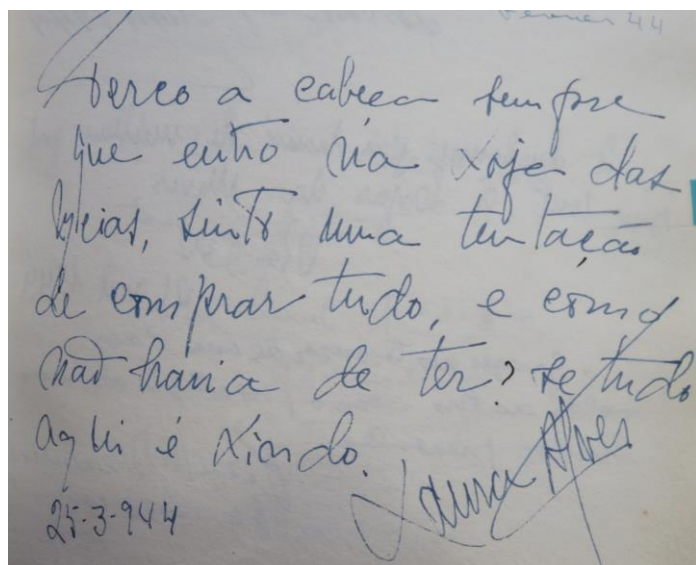 Perco a cabeca sempre
que entro na Loja das
Meias, sinto uma tentação
de comprar tudo, e como
não havia de ter? se tudo
aqui é lindo.
Laura Alves
25-3-944